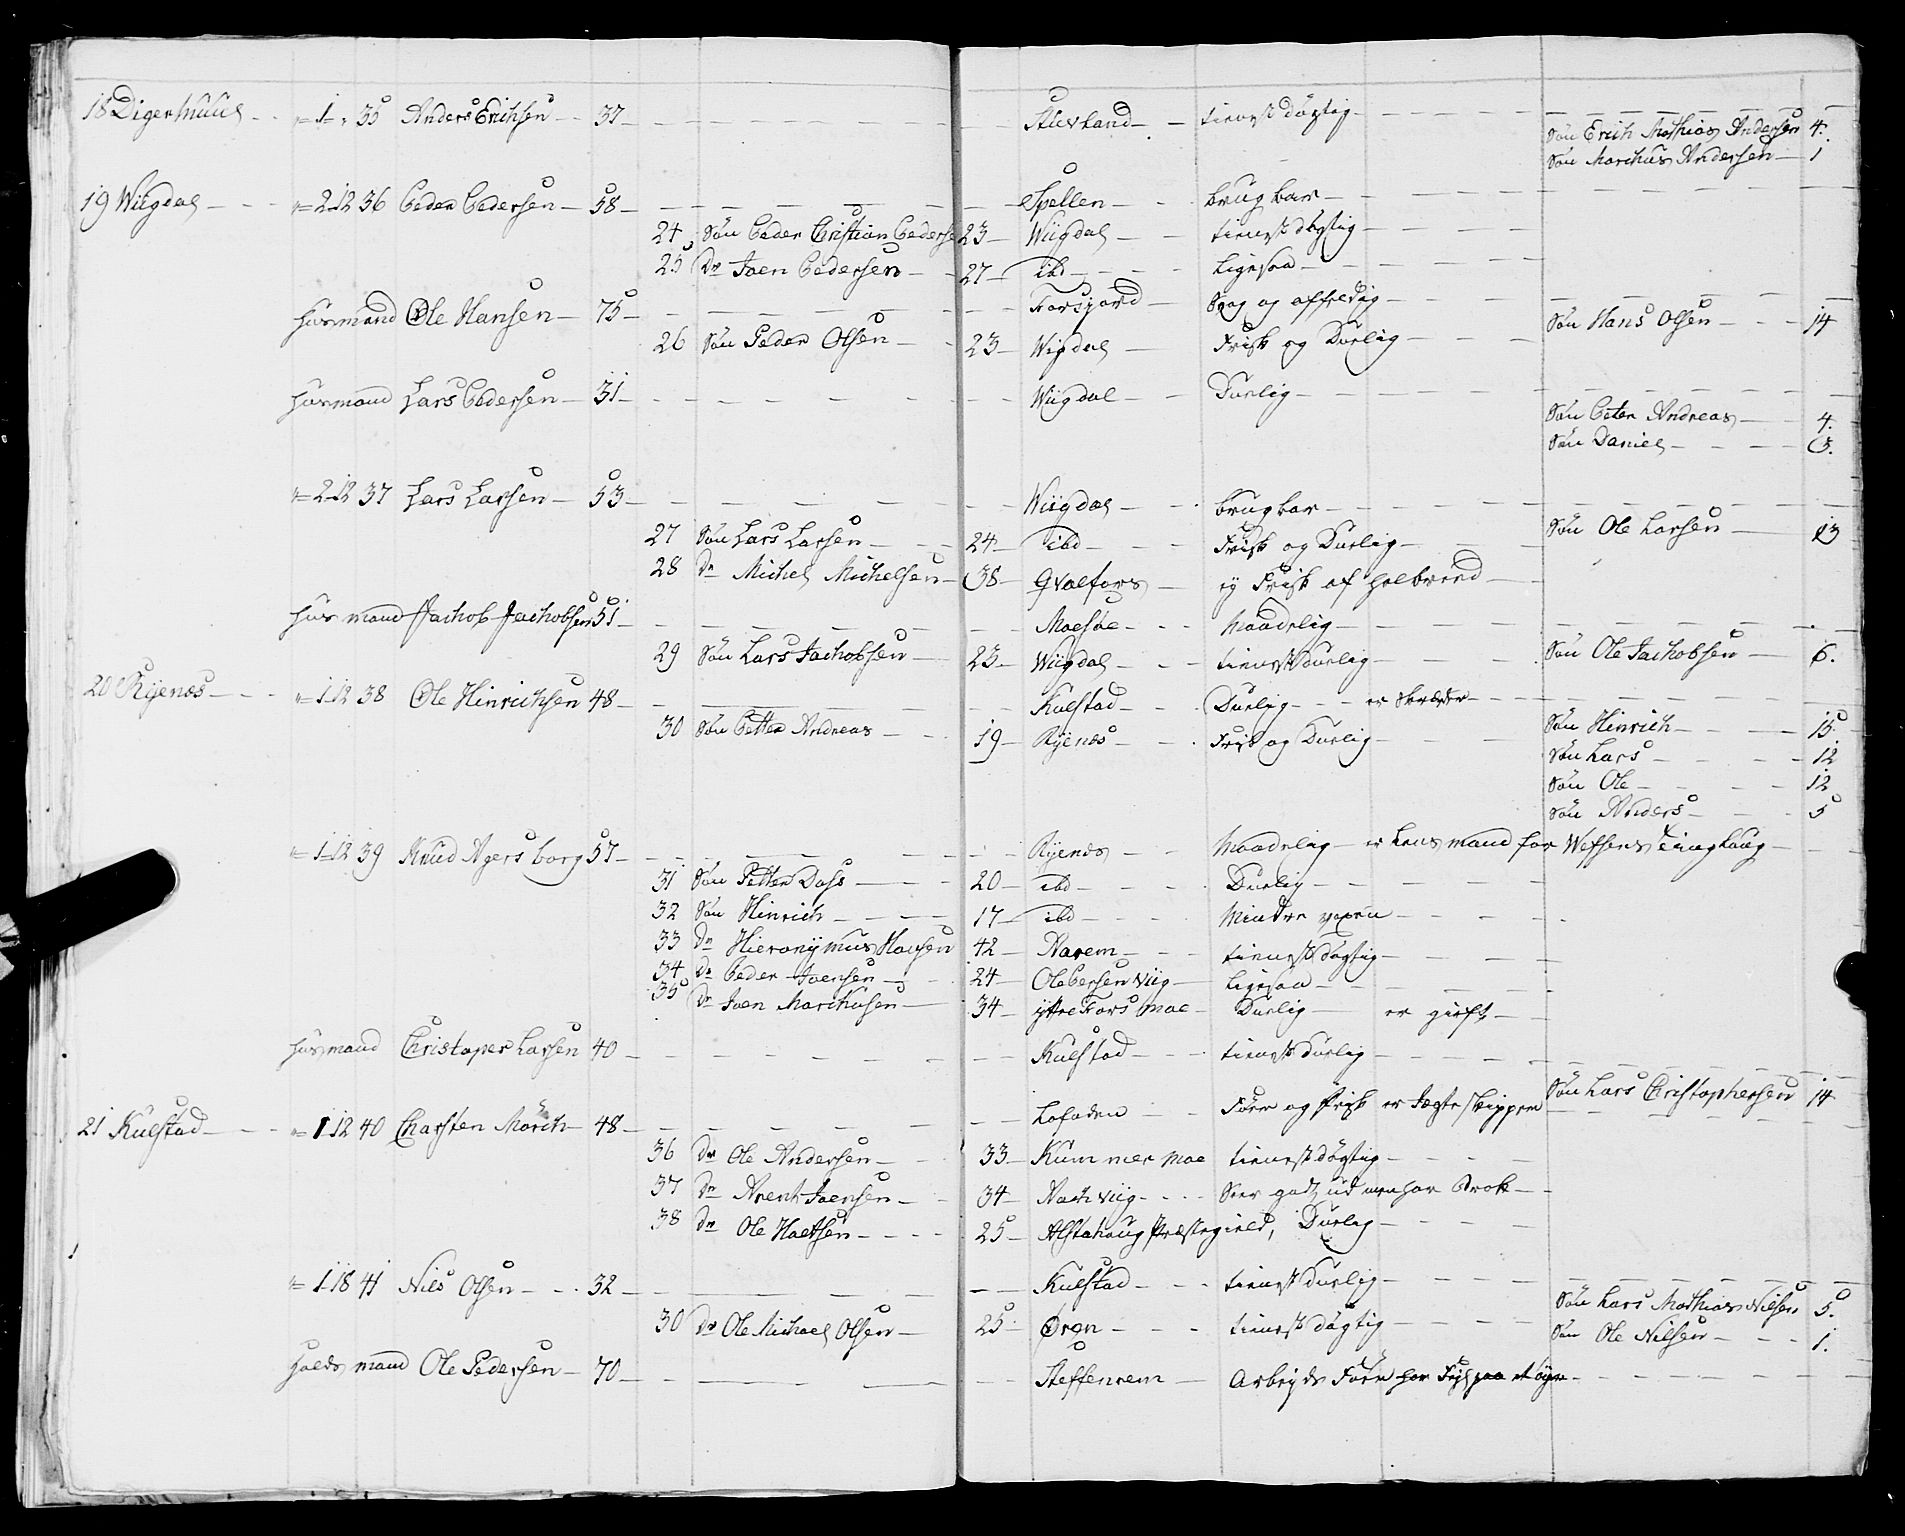 18 Digermuul - - " 1 - " 35 Anders Erichsen - - 37 - Alevland - - tienstdøgtig -
Søn Erich Mathias Andersen 4.
Søn Marchus Andersen - 1
19 Wiigdal - - - " 2 - 12 36 Peder Pedersen - 58 - Spellen - - brugbar -
24 Søn Peder Cristian Peders 23 - Wiigdal - - tienstdøgtig -
25 Dr Joen Pedersen - - 27 - ibd - - - - Ligesaa -
Husmand Ole Hansen - 75 - Forsjord - Svag og affeldig -
26 Søn Peder Olsen - - 23 - Wigdal - Frisk og Duelig - Søn Hans Olsen - - - 14
Husmand Lars Pedersen - 31 - Wiigdal - - Duelig -
Søn Peter Andreas - 4.
Søn Daniel - - - - 3.
" 2 - 12 37 Lars Larsen - 53 - Wiigdal - - brugbar -
27 Søn Lars Larsen - - - 24 - ibd - - - Frisk og Duelig - Søn Ole Larsen - 13
28 Dr Michel Michelsen - 38 - Qvalfors - ej Frisk af helbrend -
Husmand Jachob Jachobsen 51 - Moesøe - - - Maadelig -
29 Søn Lars Jachobsen - 23 - Wiigdal - - tienstduelig - Søn Ole Jachobsen - 6.
20 Rÿenæs - - - " 1 - 12 38 Ole Hinrichsen 48 - Kulstad - - Duelig - - - er Skræder -
30 Søn Petter Andreas - - 19 - Rÿenæs - - - Frisk og Duelig - Søn Hinrich - - - 15
Søn Lars - - - - 12
Søn Ole - - - - 12
Søn Anders - - - 5
" 1 - 12 39 Knud Agersborg 57 - Rÿenæs - - Maadelig - er Lensmand for Wefsens tinghaug -
31 Søn Petter Dass - - - 20 - ibd - - - Duelig -
32 Søn Hinrich - - - - 17 - ibd - - - Mindre voxen -
33 Dr Hieronÿmus Hansen 42 - Narem - - - tienstdøgtig -
34 Dr Peder Joensen - - 24 - Ole Persen Viig - Ligesaa -
35 Dr Joen Marchusen - 34 - ÿttre Fors moe - Duelig - er gieft -
Husmand Christoper Larsen 40 - Kulstad - - - tienstduelig -
Søn Lars Christophersen 14
21 Kulstad - - - " 1 12 40 Charsten Mörch - 48 - Lofoden - - Føer og Frisk er Jægteskipper
36 Dr Ole Andersen - 33 - Kummermoe tienstdøgtig -
37 Dr Arent Joensen - - 34 - Aasviig - - - Seer godt ud men har Brok -
38 Dr Ole Hoetsen - - - - 25 - Alstahaug Præstegield, Duelig -
" 1 - 18 41 Nils Olsen - - . 32 - Kulstad - - - tienstduelig -
Søn Lars Mathias Nilsen 5.
30 Dr Ole Michael Olsen - 25 - Øren - - - tienstdøgtig - Søn Ole Nilsen - - - 1.
Holdsmand Ole Pedersen - 70 - Steffenrem - Arbejds Føer har Fejl paa et øÿe -